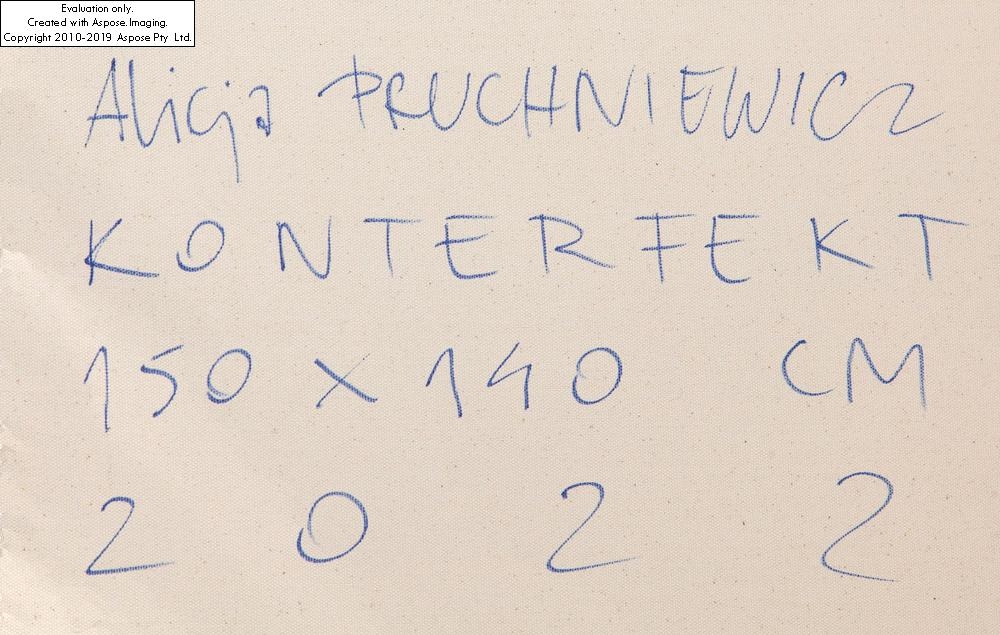 Evaluation only.
Created with Aspose.Imaging.
Copyright 2010-2019 Aspose Pty Ltd.
Alicja PRUCHNIEWICZ
KONTERFEKT
150 x 140 CM
2022